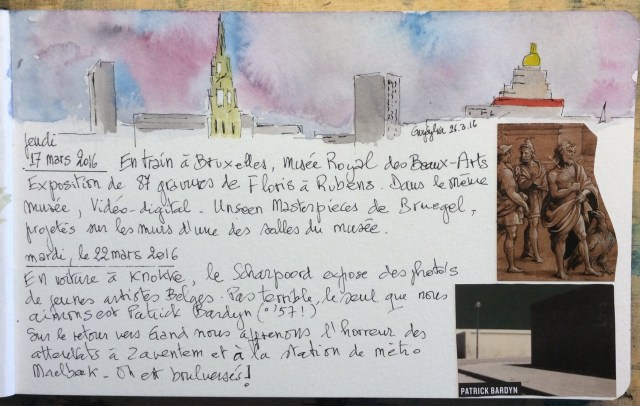 Guy Sylva 26.3.16
jeudi
17 mars 2016 En train à Bruxelles, musée Royal des Beaux-Arts
Exposition de 87 gravures de Floris à Rubens. Dans le même
musée, Vidéo-digital - Unseen Masterpieces de Bruegel,
projetés sur les murs d'une des salles du musée.
mardi, le 22 mars 2016
En voiture à Knokke, le Scharpoord expose des photo's
de jeunes artistes Belges. Pas terrible, le seul que nous
aimons est Patrick Bardyn (°'57!)
Sur le retour vers Gand nous apprenons l'horreur des
attentats à Zaventem et à la station de métro
Maelbeek - On est bouleversés!
PATRICK BARDYN